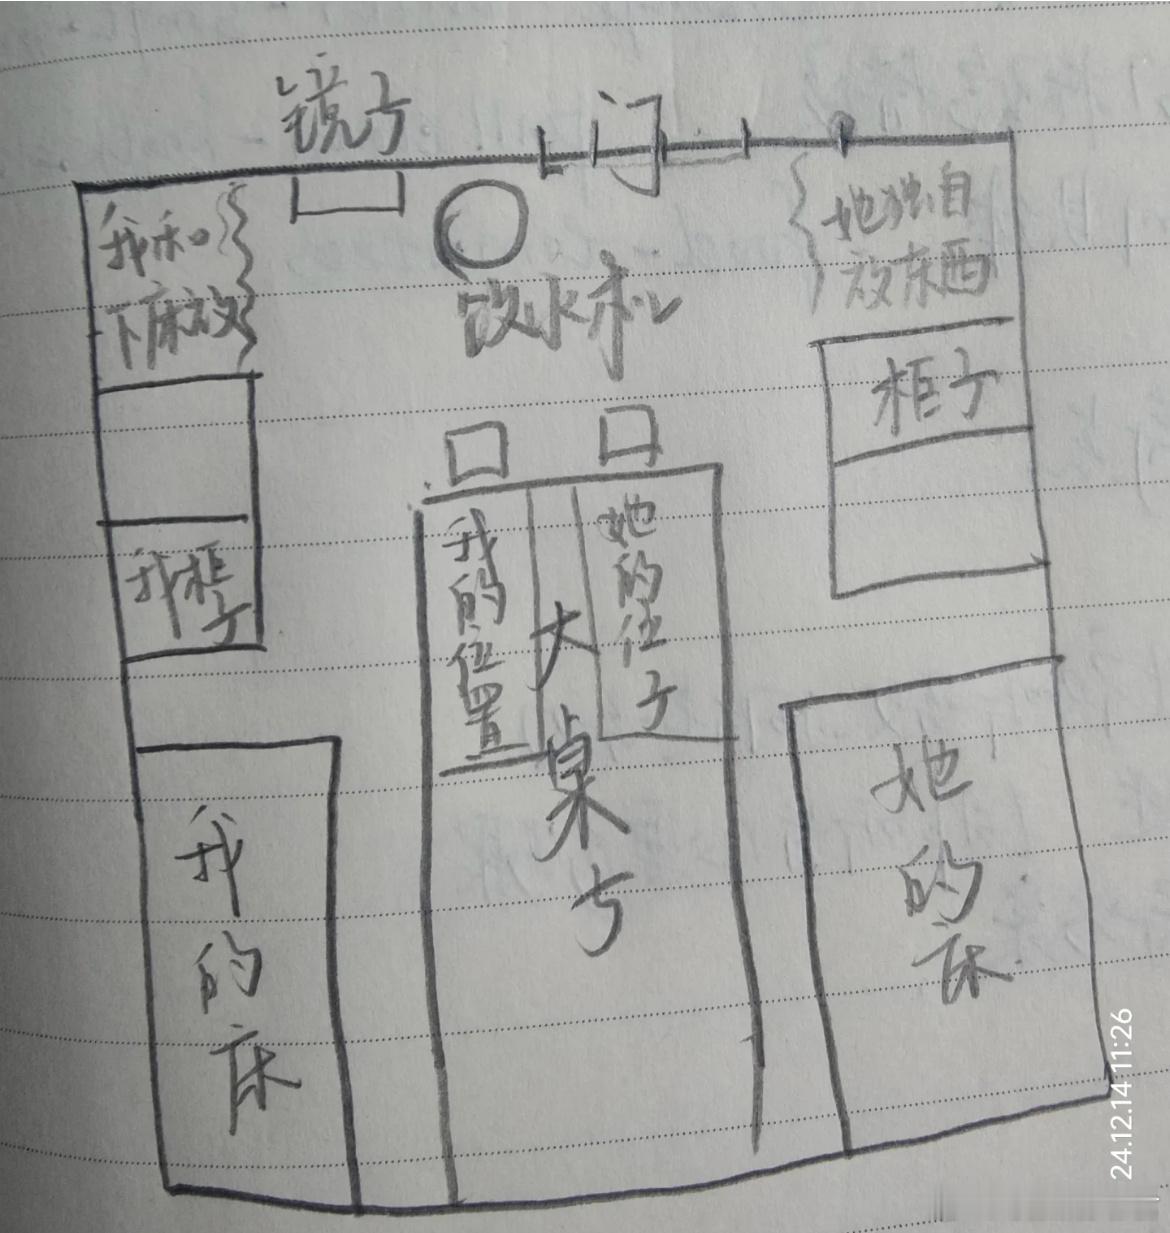 镜子
门
我和
下床放
她独自
放东西
饮水机
柜子
我柜子
我的位置
大桌子
她的位子
我的床
她的床
24.12.14 11:26